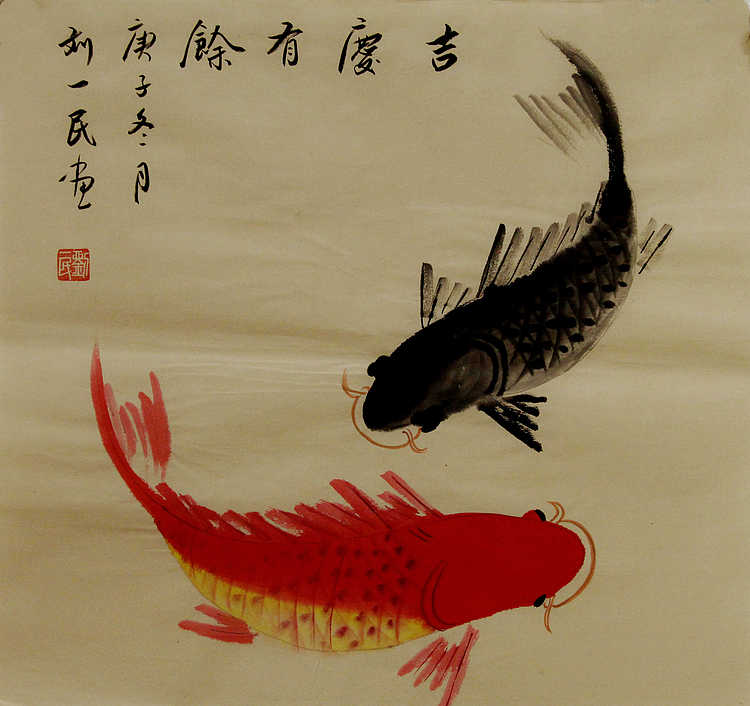 吉慶有餘
庚子冬月
刘一民画
劉一民